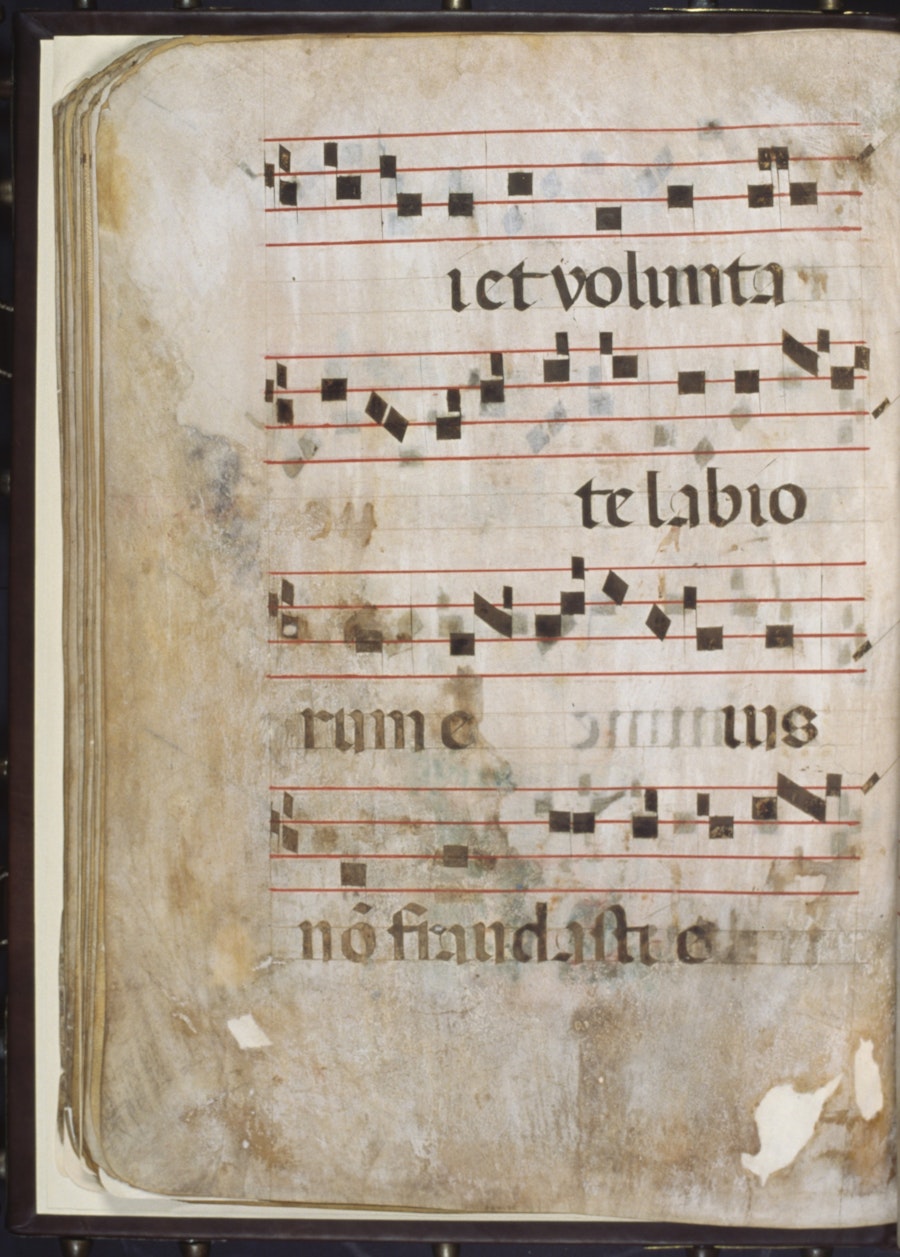 i et volunta
te labio
rum e ius
nō fraudasti e